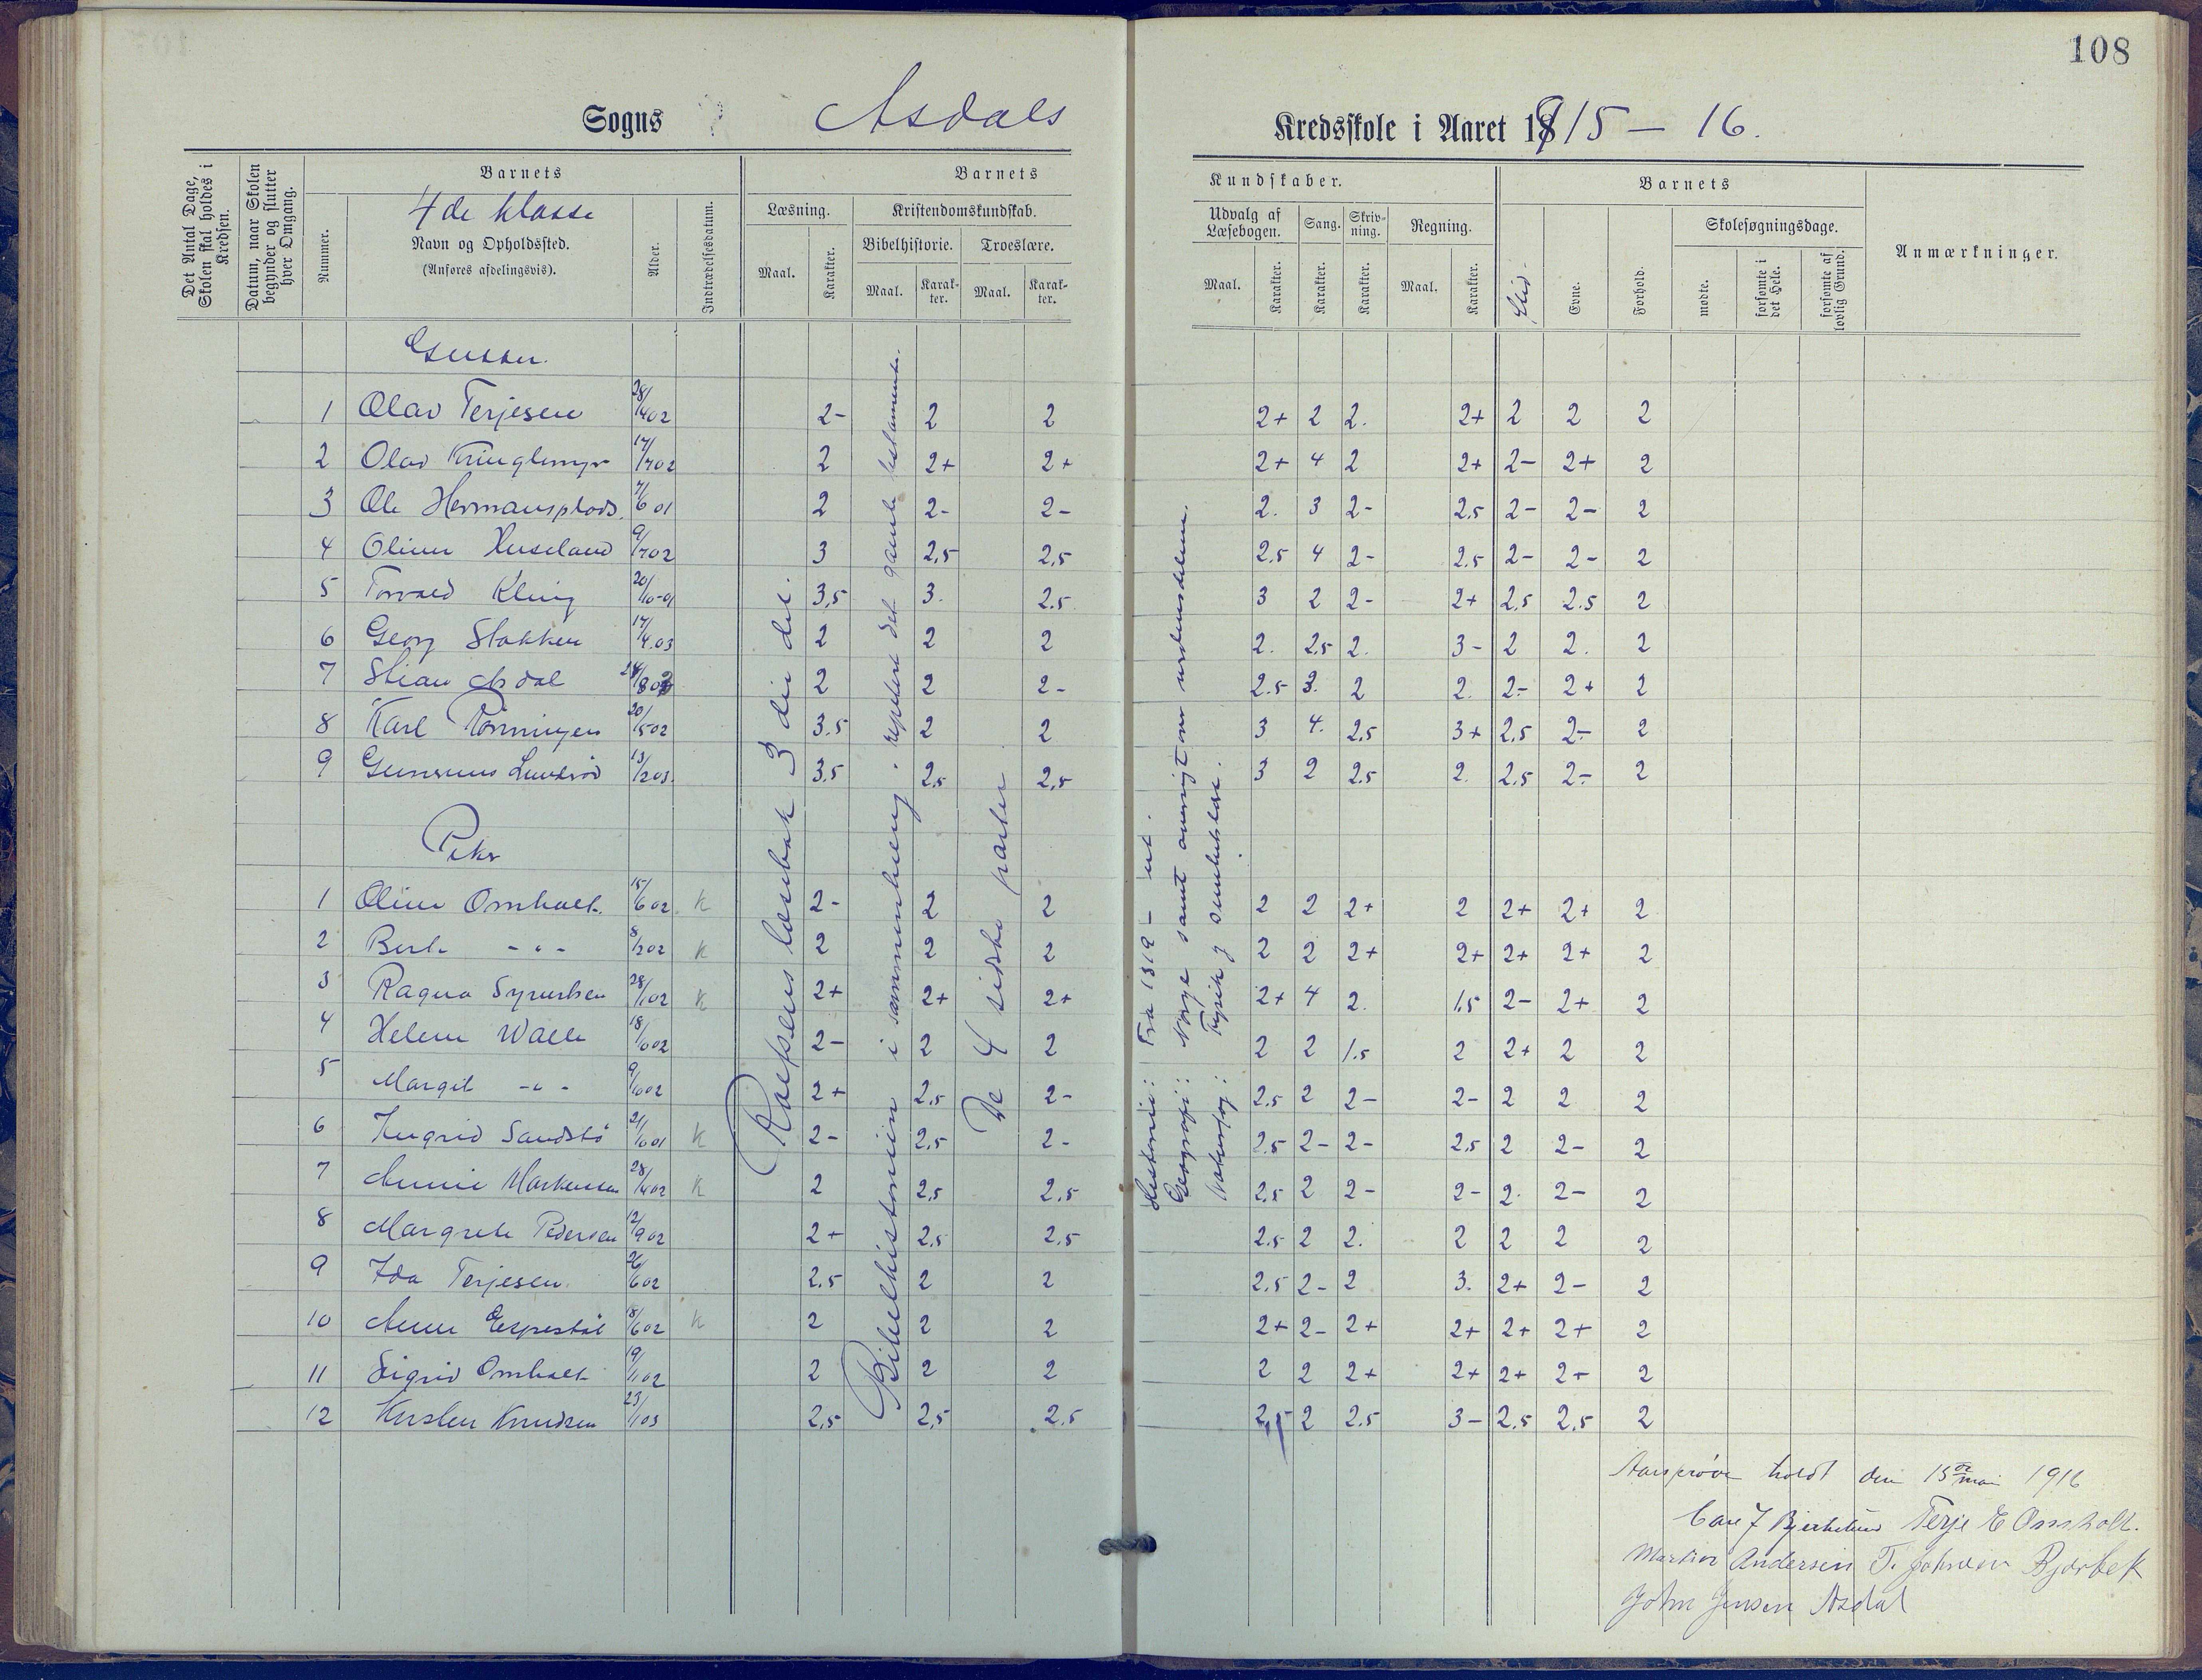 108
Sogns Asdals Kredsskole i Aaret 1915 – 16.
Det Antal Dage, Skolen skal holdes i Kredsen.
Datum, naar Skolen begynder og slutter hver Omgang.
Nummer.
Barnets
4de klasse
Navn og Opholdssted.
(Anføres afdelingsvis).
Alder.
Indtrædelsesdatum.
Barnets
Læsning. Kristendomskundskab.
Bibelhistorie. Troeslære.
Maal. Karakter. Maal. Karakter. Maal. Karakter.
Kundskaber.
Udvalg af Læsebogen. Sang. Skrivning. Regning.
Maal. Karakter. Karakter. Karakter. Maal. Karakter.
Barnets
Flid. Evne. Forhold.
Skolesøgningsdage.
mødte. forsømte i det Hele. forsømte af lovlig Grund.
Anmærkninger.
Gutter.
1 Olav Terjesen 28/4 02 2- 2 2 2+ 2 2. 2+ 2 2 2
2 Olav Kringlemyr 17/7 02 2 2+ 2+ 2+ 4 2 2+ 2- 2+ 2
3 Ole Hermansplads 7/6 01 2 2- 2- 2. 3 2- 2.5 2- 2- 2
4 Oliver Huseland 9/7 02 3 2,5 2,5 2.5 4 2- 2.5 2- 2- 2
5 Torvald Kleiv 20/10-01 3,5 3. 2.5 3 2 2- 2+ 2,5 2.5 2
6 Georg Stokken 17/4.03 2 2 2 2. 2.5 2. 3- 2 2. 2
7 Stian Asdal 24/8 02 2 2 2- 2.5 3. 2 2. 2- 2+ 2
8 Karl Rønningen 20/5 02 3.5 2 2 3 4. 2,5 3+ 2,5 2- 2
9 Gunvald Lundrød 13/2 03. 3,5 2,5 2,5 3 2 2.5 2. 2.5 2- 2
Piker
1 Oline Omholt. 15/6 02 K 2- 2 2 2 2 2+ 2 2+ 2+ 2
2 Berte - " - 8/2 02 K 2 2 2 2 2 2+ 2+ 2+ 2+ 2
3 Ragna Syvertsen 28/1 02 K 2+ 2+ 2+ 2+ 4 2. 1.5 2- 2+ 2
4 Helene Walle 18/10 02 2- 2 2 2 2 1.5 2 2+ 2 2
5 Margit - " - 9/10 02 2+ 2,5 2- 2.5 2 2- 2- 2 2 2
6 Ingrid Sandstø 21/10 01 K 2- 2,5 2- 2.5 2- 2- 2,5 2 2- 2
7 Annie Markussen 28/4 02 K 2 2,5 2,5 2,5 2 2- 2- 2. 2- 2
8 Margrete Pedersen 12/9 02 2+ 2,5 2,5 2.5 2 2. 2 2 2 2
9 Ida Terjesen. 26/6 02 2.5 2 2 2.5 2- 2 3. 2+ 2- 2
10 Anne Espestøl 18/6 02 K 2 2 2 2+ 2- 2+ 2+ 2+ 2+ 2
11 Sigrid Omholt 19/1 02 2 2 2 2 2 2+ 2+ 2+ 2+ 2
12 Kirsten Knudsen 23/1 03 2,5 2,5 2.5 2,5 2 2.5 3- 2.5 2,5 2
Rolfsens læsebok 3die del.
Bibelhistorien i sammenheng. repetert det gamle testamente.
De 4 sidste parter
Historie: Fra 1319 – ut.
Geografi: Norge samt oversigt over verdensdelene.
Naturfag: Fysik og sundhetslære.
Aarsprøve holdt den 15de mai 1916
Carl J Bjerkelund Terje E Omholt.
Martin Andersen T. Johnsen Bjorbek
John Jensen Asdal